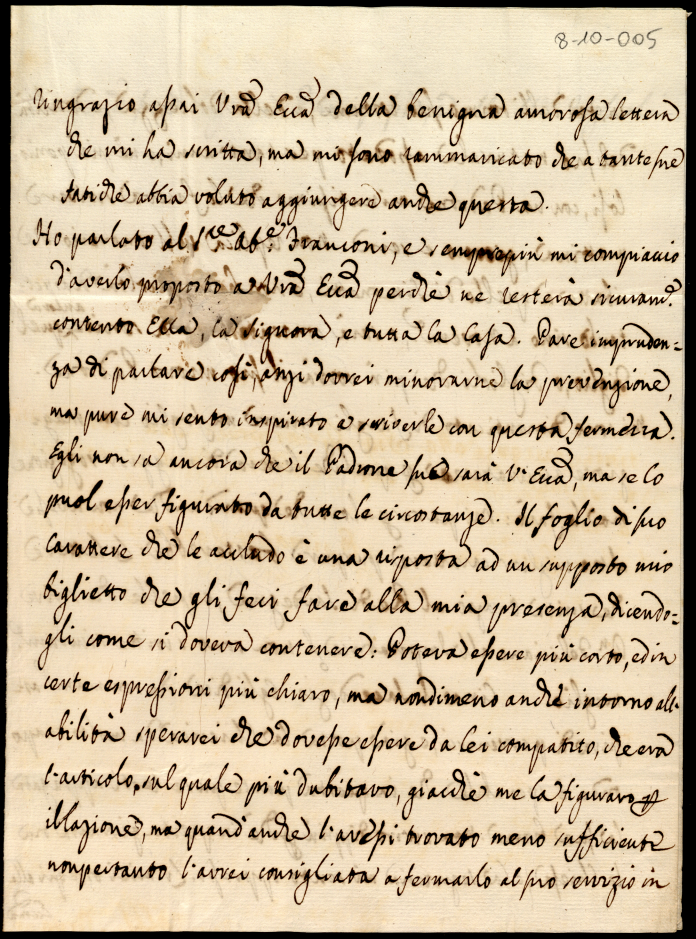 8-10-005
Ringrazio assai Vrã Eccã della benigna amorosa lettera
che mi ha scritta, ma mi sono rammaricato che a tante sue
fatiche abbia voluto aggiungere anche questa.
Ho parlato al S.re Ab.e Franconi, e semprepiù mi compiaccio
d'averlo proposto a Vrã Eccã perchè ne resterà sicuram.e
contento Ella, la Signora, e tutta la Casa. Pare impruden=
za di parlare così, anzi dovrei minorarne la prevenzione,
ma pure mi sento inspirato a scriverle con questa fermezza.
Egli non sa ancora che il Padrone suo sarà V. Eccã, ma se lo
puol esser figurato da tutte le circostanze. Il foglio di suo
Carattere che le accludo è una risposta ad un supposto mio
biglietto che gli feci fare alla mia presenza, dicendo=
gli come si doveva contenere: Poteva essere più corto, ed in
certe espressioni più chiaro, ma nondimeno anche intorno all'
abilità sperarei che dovesse essere da lei compatito, che era
l'articolo, sul quale più dubitavo, giacchè me la figuravo p
illazione, ma quand'anche l'avessi trovato meno sufficiente
nonpertanto l'avrei consigliata a fermarlo al suo servizio in